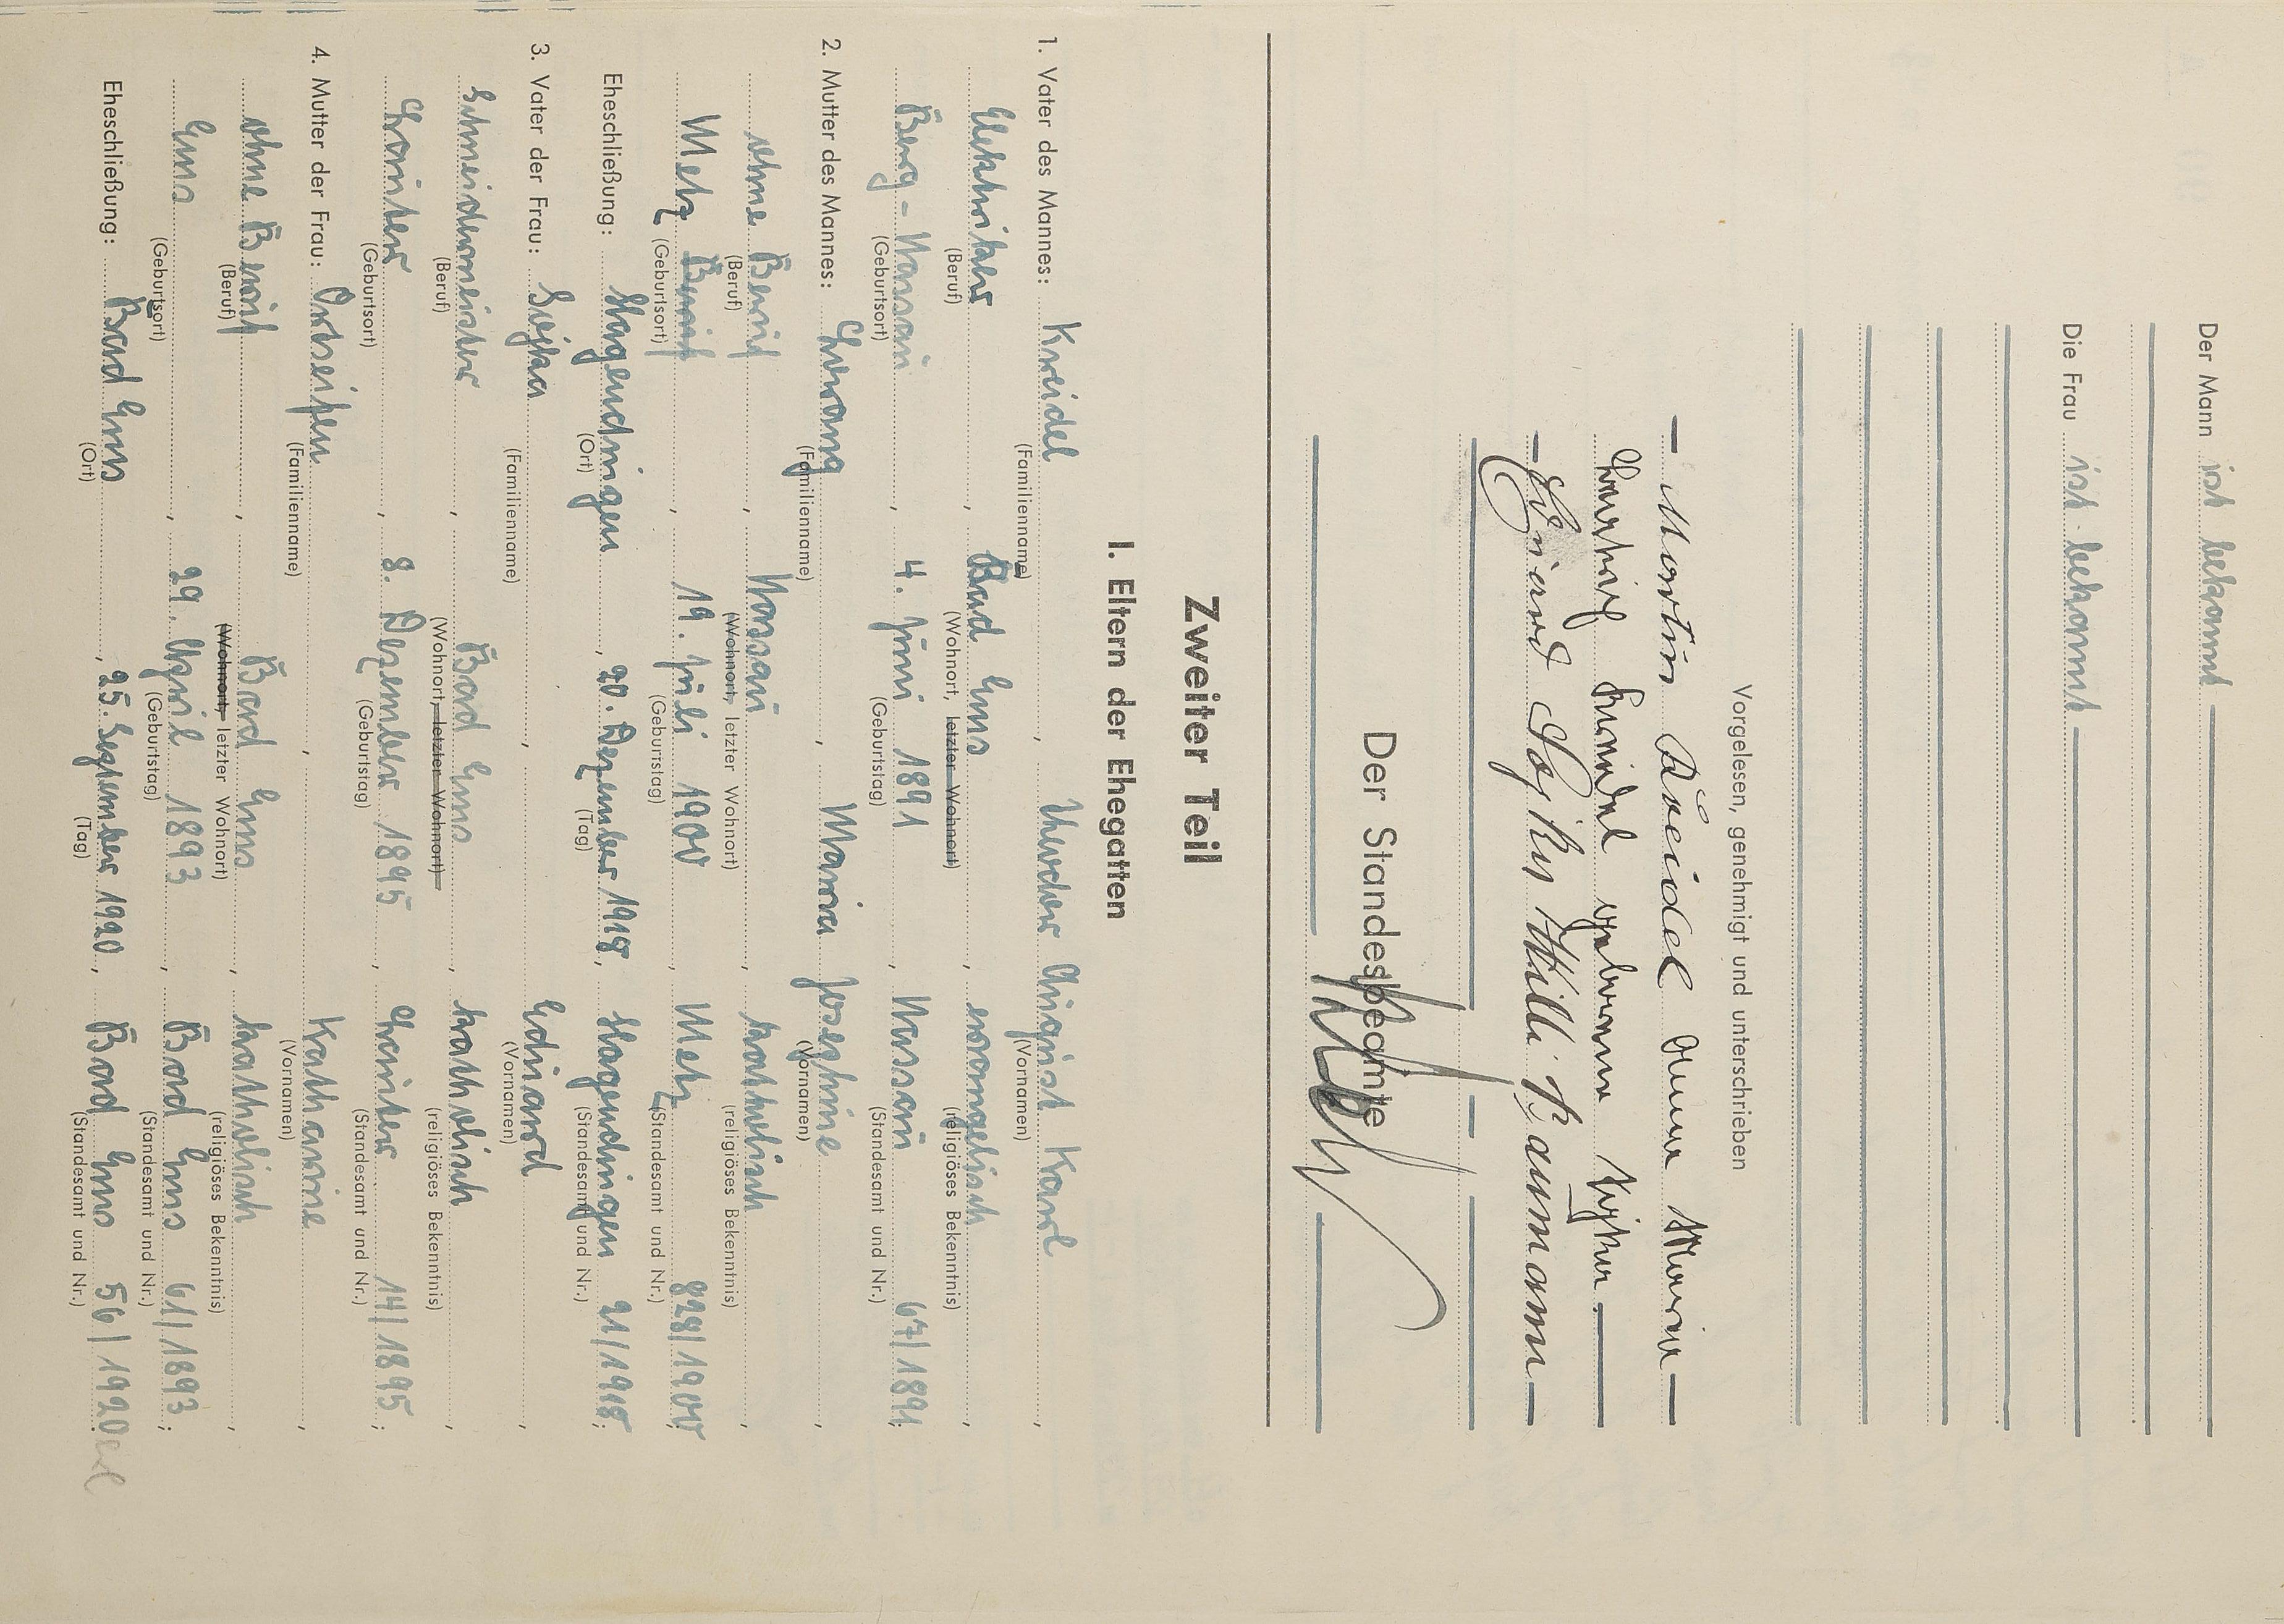 Der Mann ist bekannt
Die Frau ist bekannt
Vorgelesen, genehmigt und unterschrieben
— Martin Kreidel Anna Maria —
Kreidel geborene Sojka —
— Eduard Sojka Willi Baumann —
Der Standesbeamte
Zweiter Teil
I. Eltern der Ehegatten
1. Vater des Mannes: Kreidel, Theodor August Karl,
(Familienname) (Vornamen)
Elektriker, Bad Ems, evangelisch,
(Beruf) (Wohnort, letzter Wohnort) (religiöses Bekenntnis)
Berg-Nassau, 4. Juni 1891, Nassau 67/1891;
(Geburtsort) (Geburtstag) (Standesamt und Nr.)
2. Mutter des Mannes: Schwang, Maria Josephine,
(Familienname) (Vornamen)
ohne Beruf, Nassau, katholisch,
(Beruf) (Wohnort, letzter Wohnort) (religiöses Bekenntnis)
Metz Beruf, 19. Juli 1900, Metz 828/1900;
(Geburtsort) (Geburtstag) (Standesamt und Nr.)
Eheschließung: Hagendingen, 20. Dezember 1918, Hagendingen 21/1918;
(Ort) (Tag) (Standesamt und Nr.)
3. Vater der Frau: Sojka, Eduard,
(Familienname) (Vornamen)
Schneidermeister, Bad Ems, katholisch,
(Beruf) (Wohnort, letzter Wohnort) (religiöses Bekenntnis)
8. Dezember 1895, 14/1895;
(Geburtsort) (Geburtstag) (Standesamt und Nr.)
4. Mutter der Frau: Ortseifen, Katharine,
(Familienname) (Vornamen)
ohne Beruf, Bad Ems, katholisch,
(Beruf) (Wohnort, letzter Wohnort) (religiöses Bekenntnis)
Ems, 29. April 1893, Bad Ems 61/1893;
(Geburtsort) (Geburtstag) (Standesamt und Nr.)
Eheschließung: Bad Ems, 25. September 1920, Bad Ems 56/1920.
(Ort) (Tag) (Standesamt und Nr.)